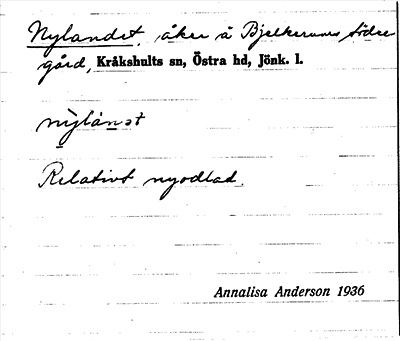 Nylandet, åker å Bjelkerums Södre
gård, Kråkshults sn, Östra hd, Jönk. l.
nỳlánət
Relativt nyodlad.
Annalisa Anderson 1936